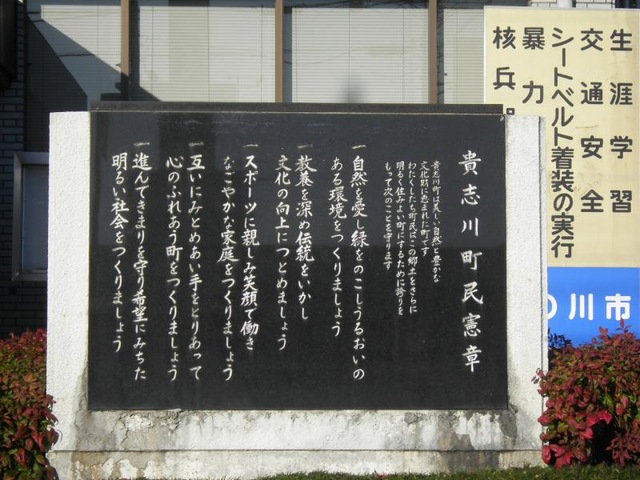 生涯学習
交通安全
シートベルト着装の実行
暴力
核兵
川市
貴志川町民憲章
貴志川町は美しい自然と豊かな
文化財に恵まれた町です
わたくしたち町民はこの郷土をさらに
明るく住みよい町にするために誇りを
もって次のことを守ります
一自然を愛し緑をのこしうるおいの
ある環境をつくりましょう
一教養を深め伝統をいかし
文化の向上につとめましょう
一スポーツに親しみ笑顔で働き
なごやかな家庭をつくりましょう
一互いにみとめあい手をとりあって
心のふれあう町をつくりましょう
一進んできまりを守り希望にみちた
明るい社会をつくりましょう